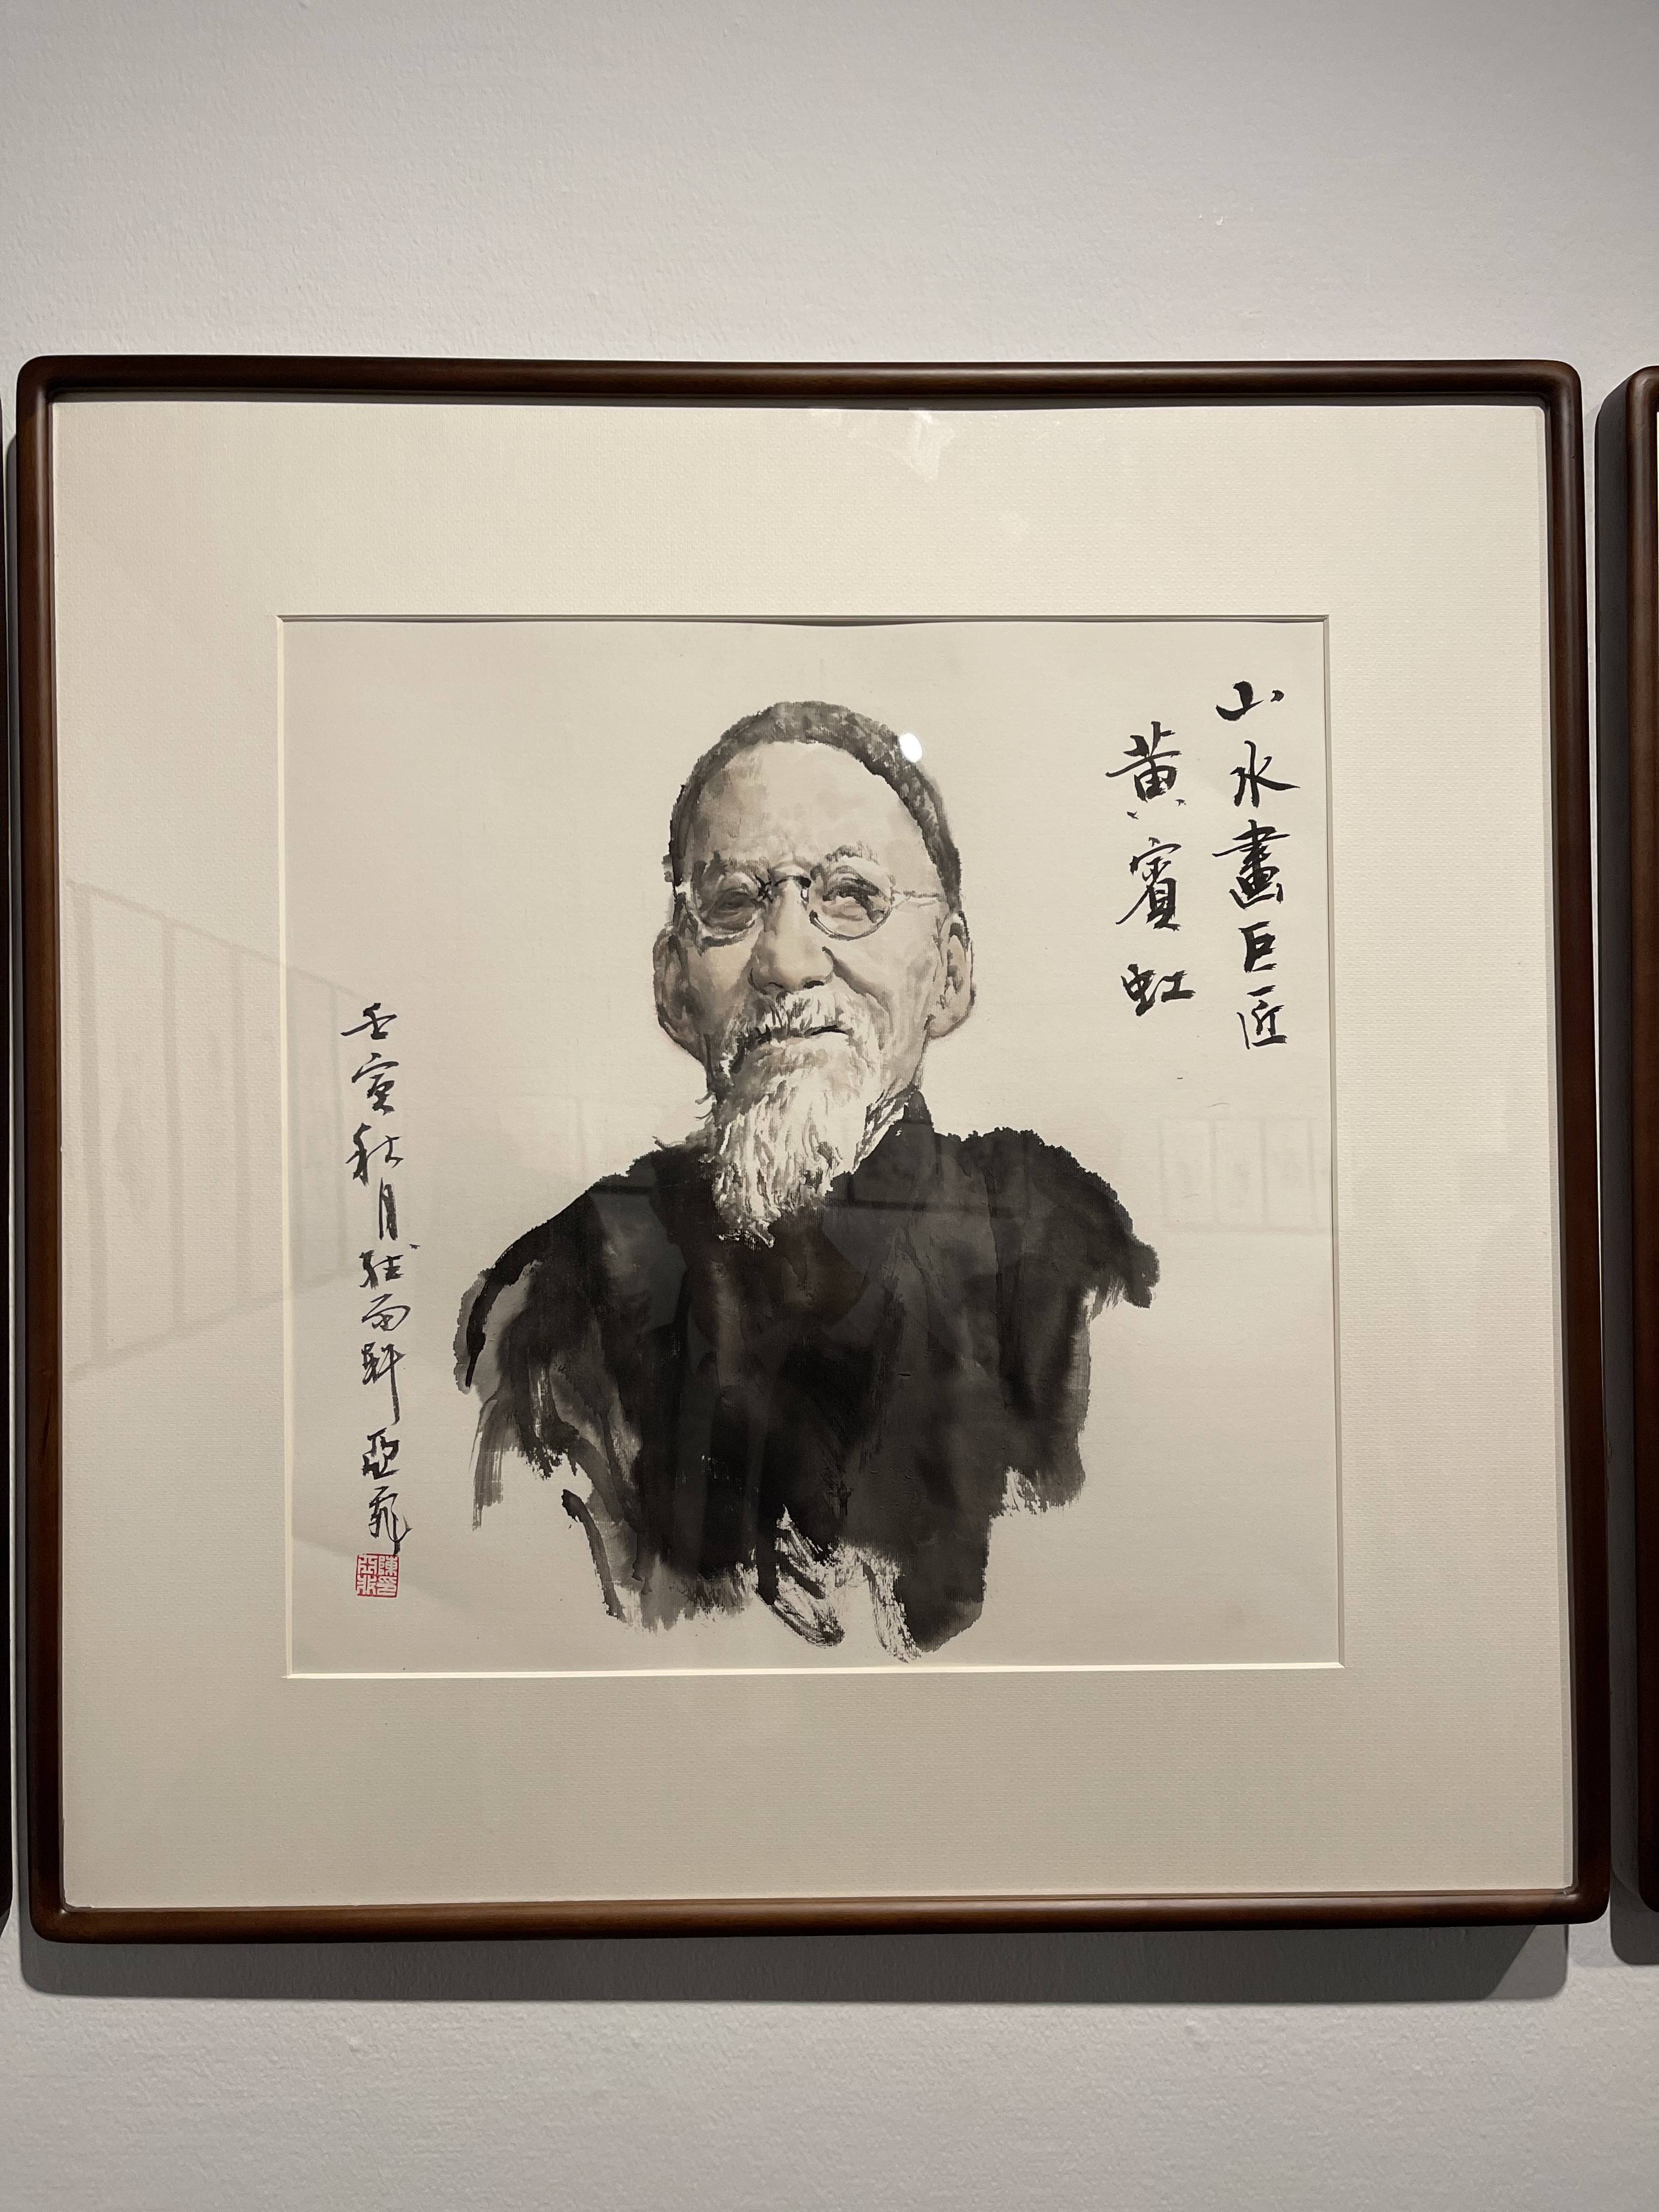 山水畫巨匠
黄賓虹
壬寅秋月雨軒亞